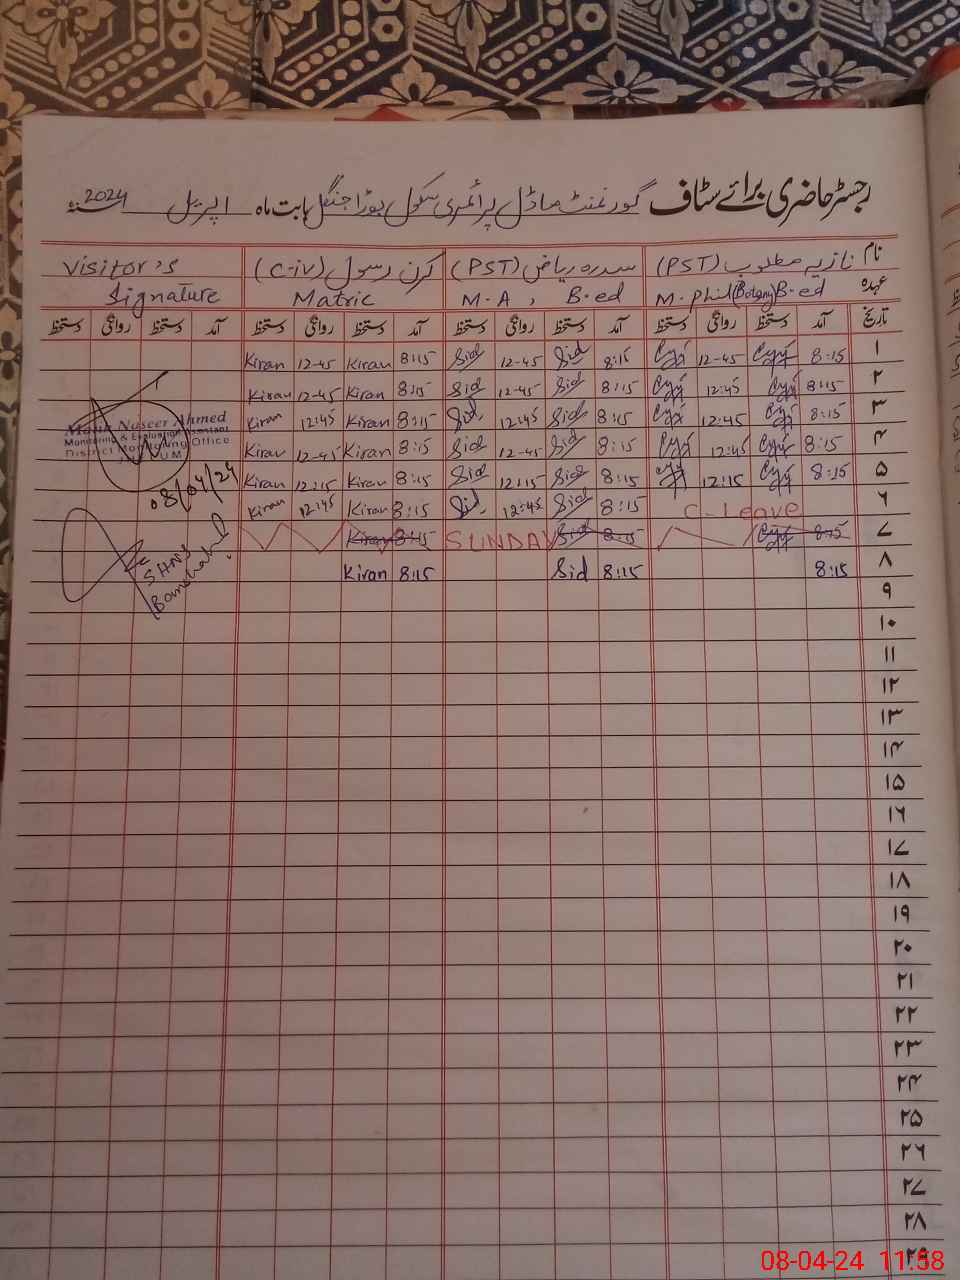 رجسٹر حاضری برائے سٹاف گورنمنٹ ماڈل پرائمری سکول بابت ماہ اپریل 2024
نام نازیہ مطلوب (PST) سدرہ ریاض (PST) کرن رسول (C-iv) Visitor's
عہدہ M.phil(Botany)B-ed M.A, B.ed Matric Signature
تاریخ آمد دستخط روانگی دستخط آمد دستخط روانگی دستخط آمد دستخط روانگی دستخط آمد دستخط روانگی دستخط
۱ 8:15 12-45 8:15 Sid 12-45 Sid 8:15 Kiran 12-45 Kiran
۲ 8:15 12:45 8:15 Sid 12-45 Sid 8:15 Kiran 12-45 Kiran
۳ 8:15 12:45 8:15 Sid 12:45 Sid 8:15 Kiran 12:45 Kiran
۴ 8:15 12:45 8:15 Sid 12-45 Sid 8:15 Kiran 12-45 Kiran
۵ 8:15 12:15 8:15 Sid 12:15 Sid 8:15 Kiran 12:15 Kiran
۶ C-Leave 8:15 Sid 12:45 Sid 8:15 Kiran 12:45 Kiran
۷ 8:15 8:15 Sid SUNDAY 8:15 Kiran
۸ 8:15 8:15 Sid 8:15 Kiran
Naseer Ahmed
Monitoring & Evaluation Assistant
District Monitoring Office
08/04/24
۹
۱۰
۱۱
۱۲
۱۳
۱۴
۱۵
۱۶
۱۷
۱۸
۱۹
۲۰
۲۱
۲۲
۲۳
۲۴
۲۵
۲۶
۲۷
۲۸
۲۹
08-04-24 11:58